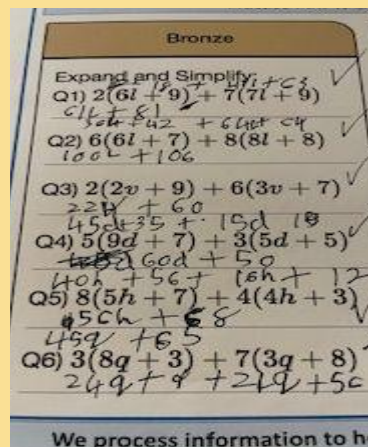 Bronze
Expand and Simplify:
49l + 63
Q1) 2(6l + 9) + 7(7l + 9)
61l + 81
36l + 42 + 64l + 64
Q2) 6(6l + 7) + 8(8l + 8)
100l + 106
Q3) 2(2v + 9) + 6(3v + 7)
22v + 60
45d + 35 + 15d 15
Q4) 5(9d + 7) + 3(5d + 5)
60d + 50
40h + 56 + 16h + 12
Q5) 8(5h + 7) + 4(4h + 3)
56h + 68
45q + 65
Q6) 3(8q + 3) + 7(3q + 8)
24q + 9 + 21q + 56
We process information to h